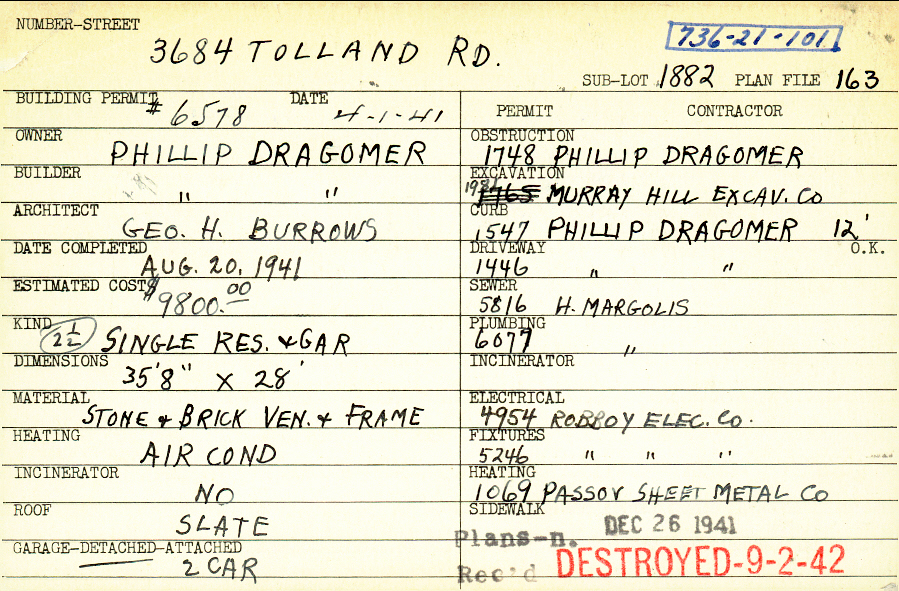 NUMBER-STREET
3684 TOLLAND RD.
736-21-101
SUB-LOT 1882 PLAN FILE 163
BUILDING PERMIT # 6578 DATE 4-1-41
OWNER
PHILLIP DRAGOMER
BUILDER
" "
ARCHITECT
GEO. H. BURROWS
DATE COMPLETED
AUG. 20, 1941
ESTIMATED COST
$9800.00
KIND
2 1/2 SINGLE RES. & GAR
DIMENSIONS
35'8" X 28'
MATERIAL
STONE & BRICK VEN. & FRAME
HEATING
AIR COND
INCINERATOR
NO
ROOF
SLATE
GARAGE-DETACHED-ATTACHED
2 CAR
PERMIT CONTRACTOR
OBSTRUCTION
1748 PHILLIP DRAGOMER
EXCAVATION
1765 MURRAY HILL EXCAV. CO
CURB
1547 PHILLIP DRAGOMER 12'
DRIVEWAY O.K.
1446 " "
SEWER
5816 H. MARGOLIS
PLUMBING
6077 "
INCINERATOR
ELECTRICAL
4954 ROBROY ELEC. CO.
FIXTURES
5246 " " "
HEATING
1069 PASSOV SHEET METAL CO
SIDEWALK
Plans-n. DEC 26 1941
Rec'd DESTROYED-9-2-42